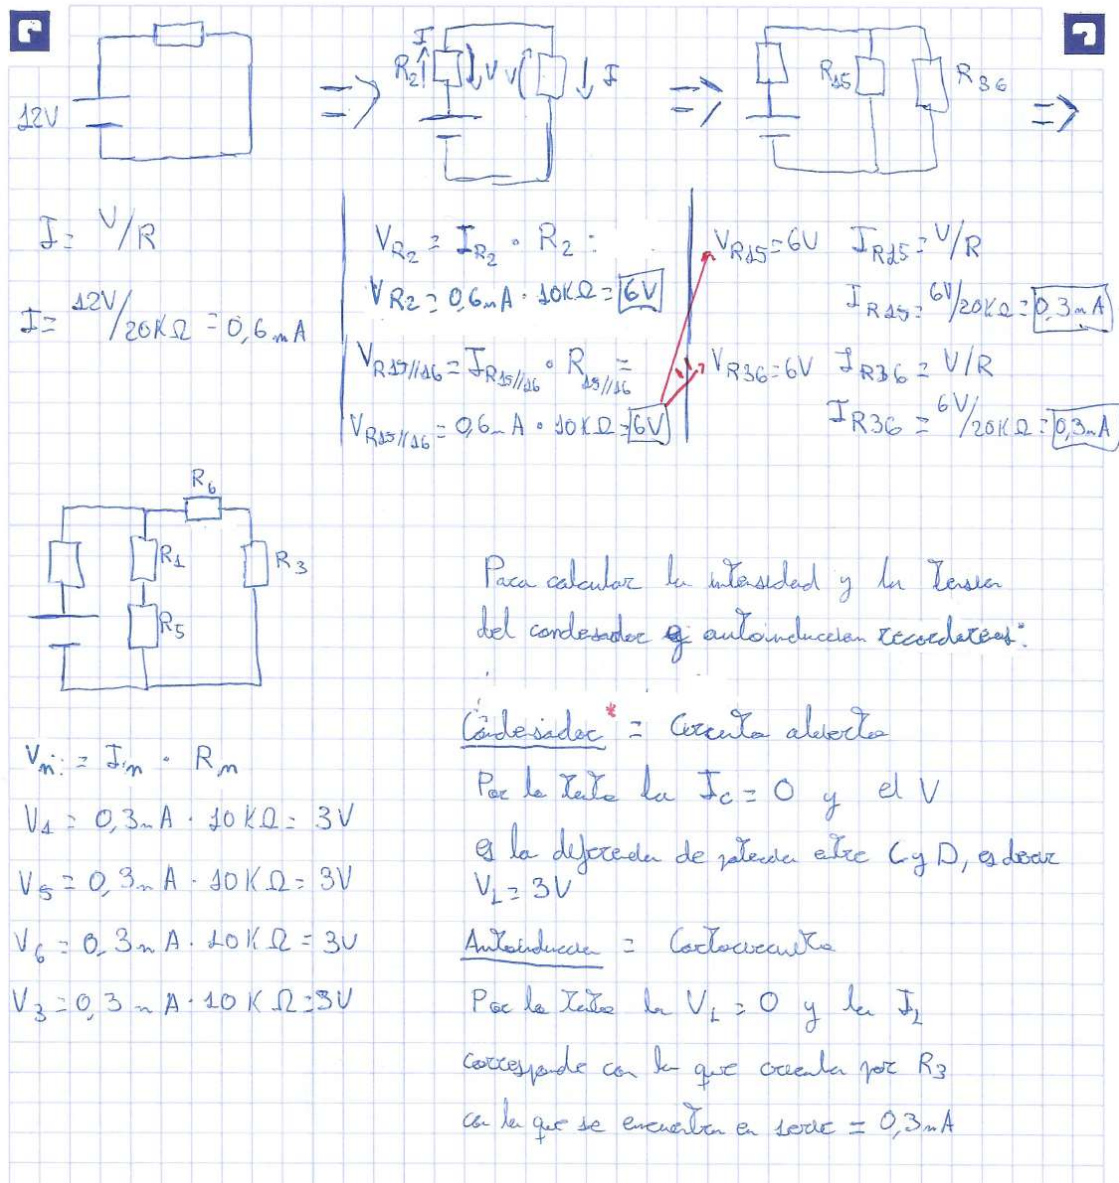 12V
I
R2
V
V
I
R15
R36
I = V/R
I = 12V/20KΩ = 0,6mA
VR2 = IR2 · R2 :
VR2 = 0,6mA · 10KΩ = 6V
VR15//16 = IR15//16 · R15//16 =
VR15//16 = 0,6mA · 10KΩ = 6V
VR15 = 6V IR15 = V/R
IR15 = 6V/20KΩ = 0,3mA
VR36 = 6V IR36 = V/R
IR36 = 6V/20KΩ = 0,3mA
R6
R1
R3
R5
Vn: = In · Rn
V1 = 0,3mA · 10KΩ = 3V
V5 = 0,3mA · 10KΩ = 3V
V6 = 0,3mA · 10KΩ = 3V
V3 = 0,3mA · 10KΩ = 3V
Para calcular la intensidad y la tension
del condesador y autoinduccion recordareos:
Condesador* = Circuito abierto
Por lo tato la Ic = 0 y el V
es la difereda de poteda etre C y D, es decir
VL = 3V
Autoinduccion = Cortocircuito
Por lo tato la VL = 0 y la IL
corresponde con la que circula por R3
con la que se encuentra en serie = 0,3mA